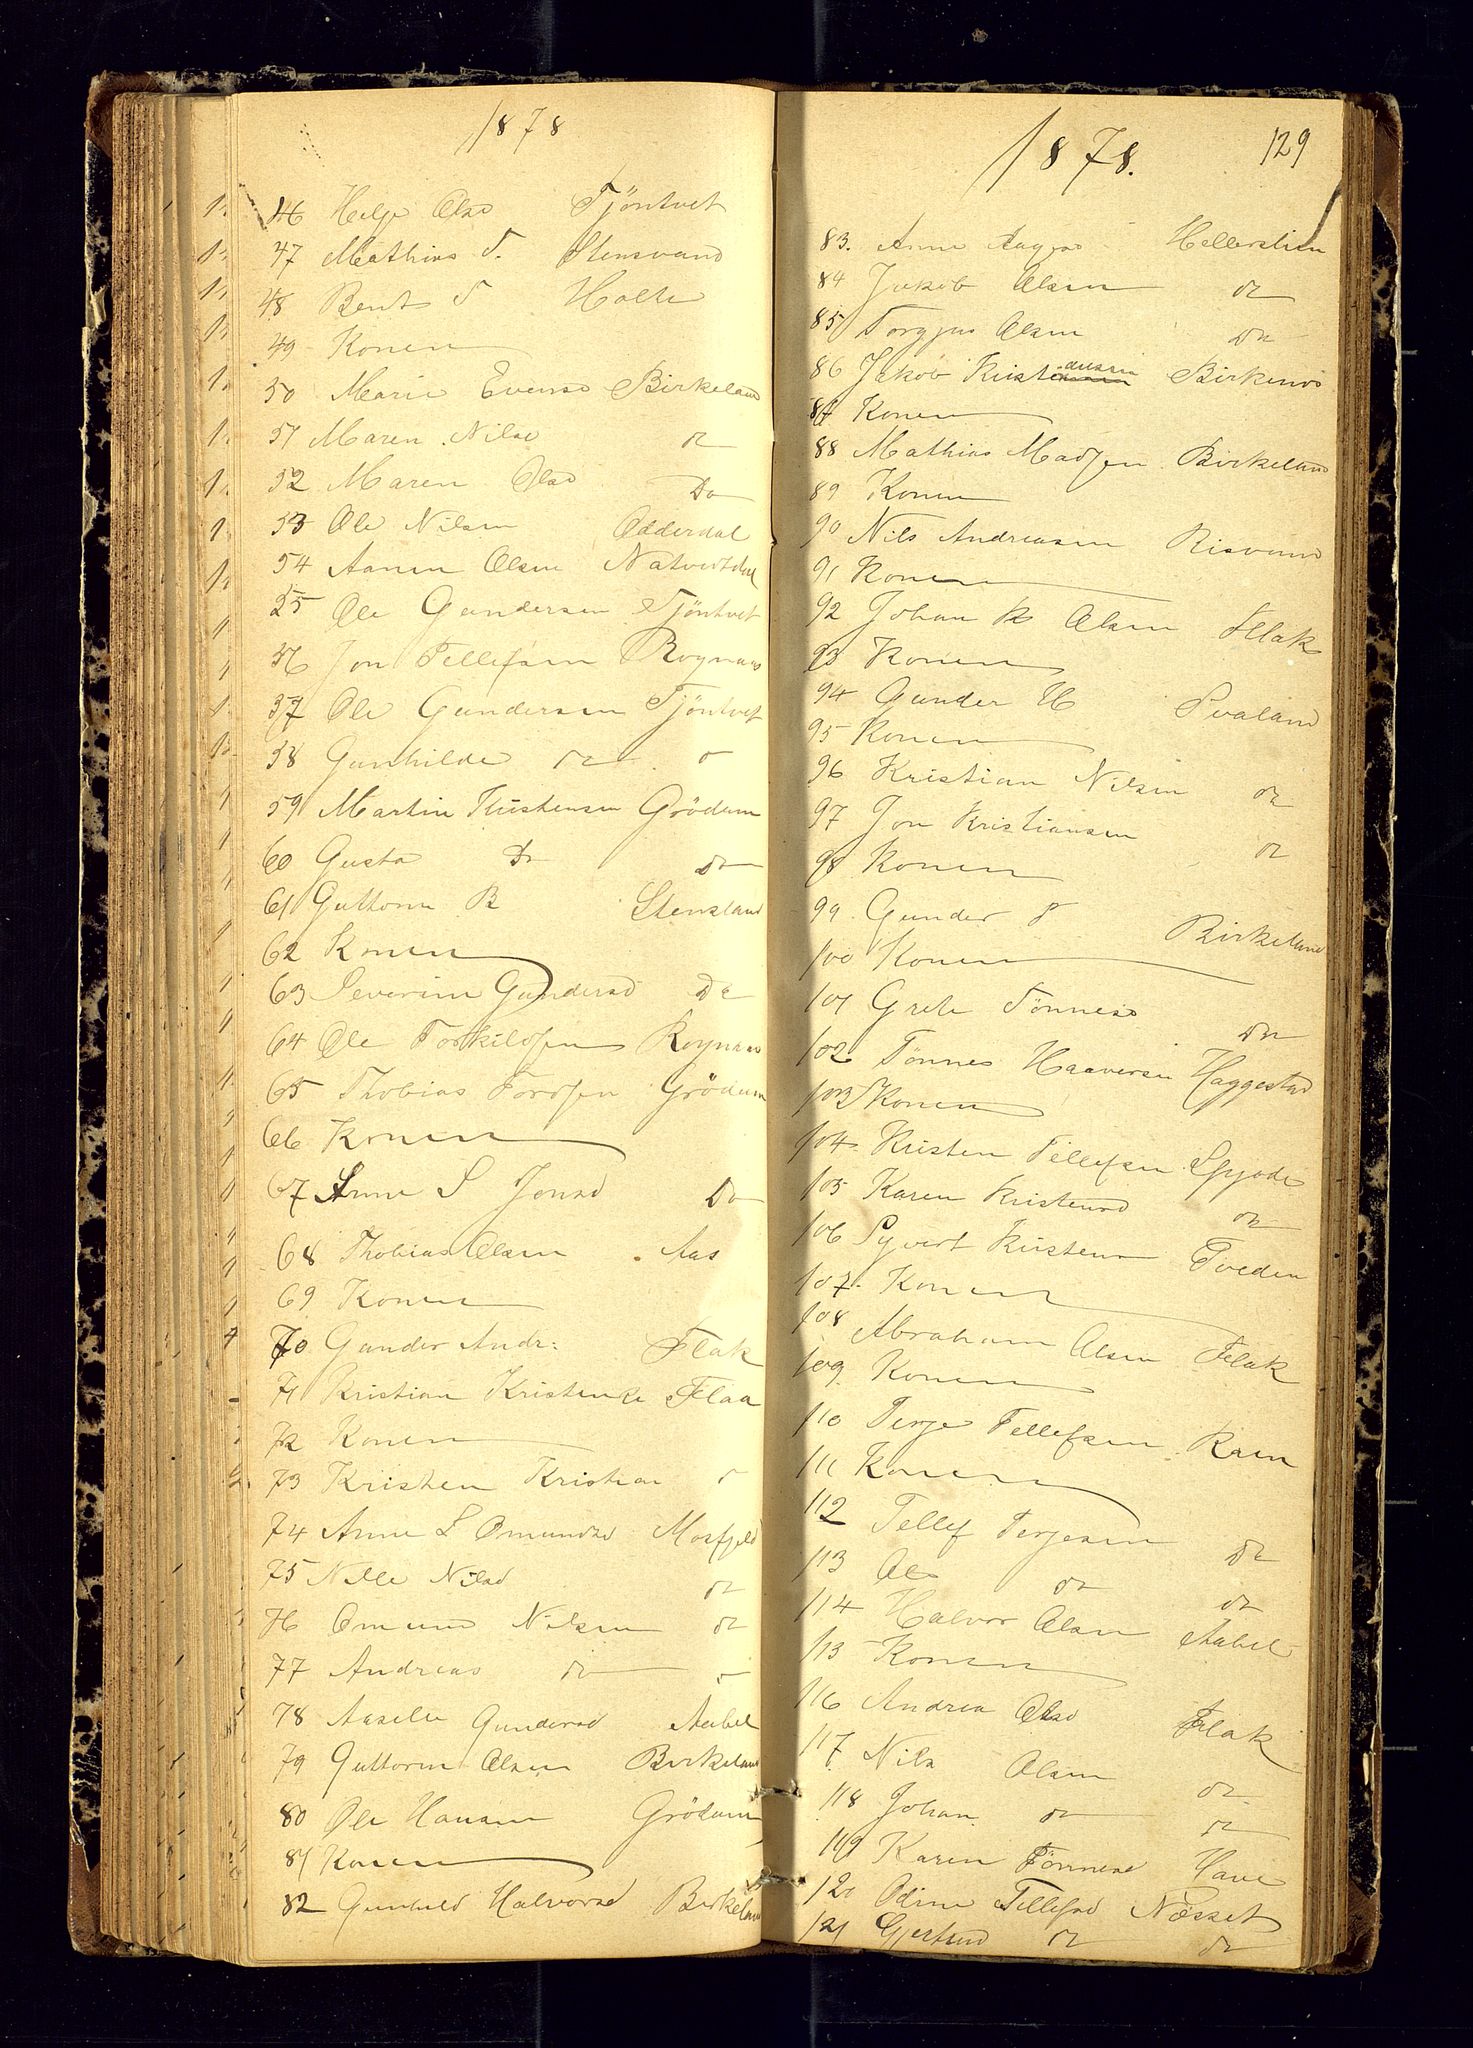 1878
46 Helje Olsd Tjöntvet
47 Mathias T. Stensvand
48 Bent T Holte
49 Konen
50 Marie Evensd Birkeland
51 Maren Nilsd do
52 Maren Olsd Do
53 Ole Nilsen Odderdal
54 Aanen Olsen
55 Ole Gundersen Tjöntvet
56 Jon Tellefsen Roynaas
57 Ole Gundersen Tjöntvet
58 Gunhilde do
59 Martin Kristensen Grödum
60 Gusta Do Do
61 Guttorm B Stensland
62 Konen
63 Severine Gundersd Do
64 Ole Torkildsen Roynaas
65 Thobias Tordsen Grödum
66 Konen
67 Anne S Jonsd Do
68 Thobias Olsen Aas
69 Konen
70 Gunder Andr: Flak
71 Kristian Kristens Flaa
72 Konen
73 Kristen Kristian
74 Anne L Omundsd Mosfjeld
75 Nille Nilsd do
76 Omund Nilsen do
77 Andreas do
78 Aaselle Gundersd Aabel
79 Guttorm Olsen Birkeland
80 Ole Hansen Grödum
81 Konen
82 Gunhild Halvorsd Birkeland
1878. 129
83. Anne Aagesd Hellerslien
84 Jakob Olsen do
85 Torgjus Olsen Do
86 Jakob Kristensen Birkenes
87 Konen
88 Mathias Madsen Birkeland
89 Konen
90 Nils Andreasen Risvand
91 Konen
92 Johan K Olsen Flak
93 Konen
94 Gunder H Svaland
95 Konen
96 Kristian Nilsen do
97 Jon Kristiansen do
98 Konen
99 Gunder T Birkeland
100 Konen
101 Grete Tönnesd Do
102 Tönnes Haaversen Haggestad
103 Konen
104 Kristen Tellefsen
105 Karen Kristensd do
106 Syvert Kristens Tveden
107. Konen
108 Abraham Olsen Flak
109 Konen
110 Terje Tellefsen
111 Konen
112 Tellef Terjesen Do
113 Ols do do
114 Halvor Olsen Aabel
115 Konen
116 Andrea Olsd Flak
117 Nils Olsen do
118 Johan do do
119 Karen Tönnesd Have
120 Odine Tellefsd Næsset
121 Gjertrud do do